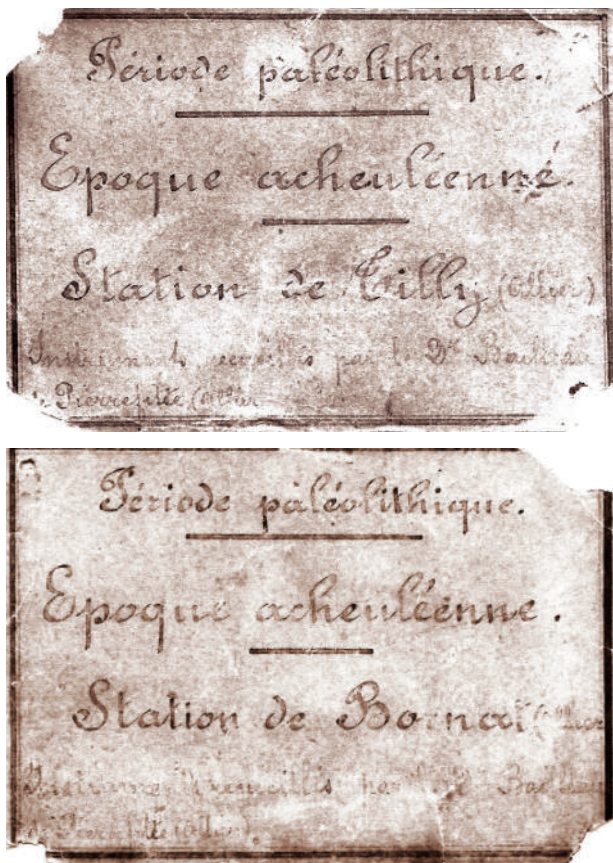 Période paléolithique.
Epoque acheuléenné.
Station de Tilly (Allier)
Instruments recueillis par le Dr Bailleau
de Pierrefitte (Allier
Période paléolithique.
Epoque acheuléenne.
Station de Bornat (Allier
Instruments recueillis par le Dr Bailleau
de Pierrefitte (Allier).